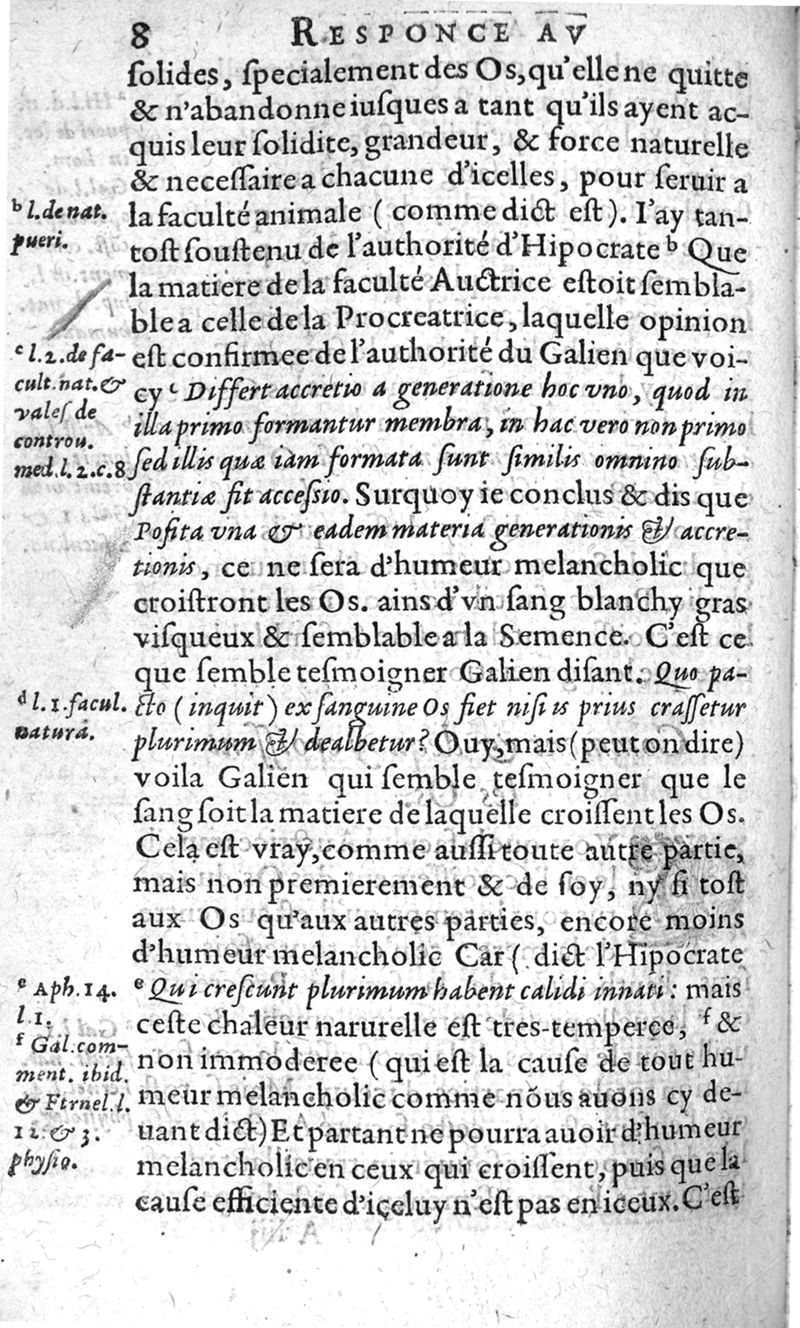 8 RESPONCE AV
ſolides, ſpecialement des Os, qu'elle ne quitte
& n'abandonne iuſques a tant qu'ils ayent ac-
quis leur ſolidite, grandeur, & force naturelle
& neceſſaire a chacune d'icelles, pour ſeruir a
la faculté animale ( comme dict eſt ). I'ay tan-
toſt ſouſtenu de l'authorité d'Hipocrate ᵇ Que
la matiere de la faculté Auctrice eſtoit ſembla-
ble a celle de la Procreatrice, laquelle opinion
eſt confirmee de l'authorité du Galien que voi-
cy ᶜ Differt accretio a generatione hoc vno, quod in
illa primo formantur membra, in hac vero non primo
ſed illis quæ iam formata ſunt ſimilis omnino ſub-
ſtantiæ fit acceſsio. Surquoy ie conclus & dis que
Poſita vna & eadem materia generationis & accre-
tionis, ce ne ſera d'humeur melancholic que
croiſtront les Os. ains d'vn ſang blanchy gras
viſqueux & ſemblable a la Semence. C'eſt ce
que ſemble teſmoigner Galien diſant. Quo pa-
cto ( inquit ) ex ſanguine Os fiet niſi is prius craſſetur
plurimum & dealbetur? Ouy, mais (peut on dire)
voila Galien qui ſemble teſmoigner que le
ſang ſoit la matiere de laquelle croiſſent les Os.
Cela eſt vray, comme auſſi toute autre partie,
mais non premierement & de ſoy, ny ſi toſt
aux Os qu'aux autres parties, encore moins
d'humeur melancholic Car ( dict l'Hipocrate
ᵉ Qui creſcunt plurimum habent calidi innati : mais
ceſte chaleur narurelle eſt tres-temperee, ᶠ &
non immoderee ( qui eſt la cauſe de tout hu-
meur melancholic comme nous auons cy de-
uant dict) Et partant ne pourra auoir d'humeur
melancholic en ceux qui croiſſent, puis que la
cauſe efficiente d'iceluy n'eſt pas en iceux. C'eſt
ᵇ l. de nat.
pueri.
ᶜ l. 2. de fa-
cult. nat. &
valeſ de
controu.
med. l. 2. c. 8
ᵈ l. 1. facul.
natura.
ᵉ Aph. 14.
l. 1.
ᶠ Gal. com-
ment. ibid.
& Ftrnel. l.
11. & 3.
phyſio.